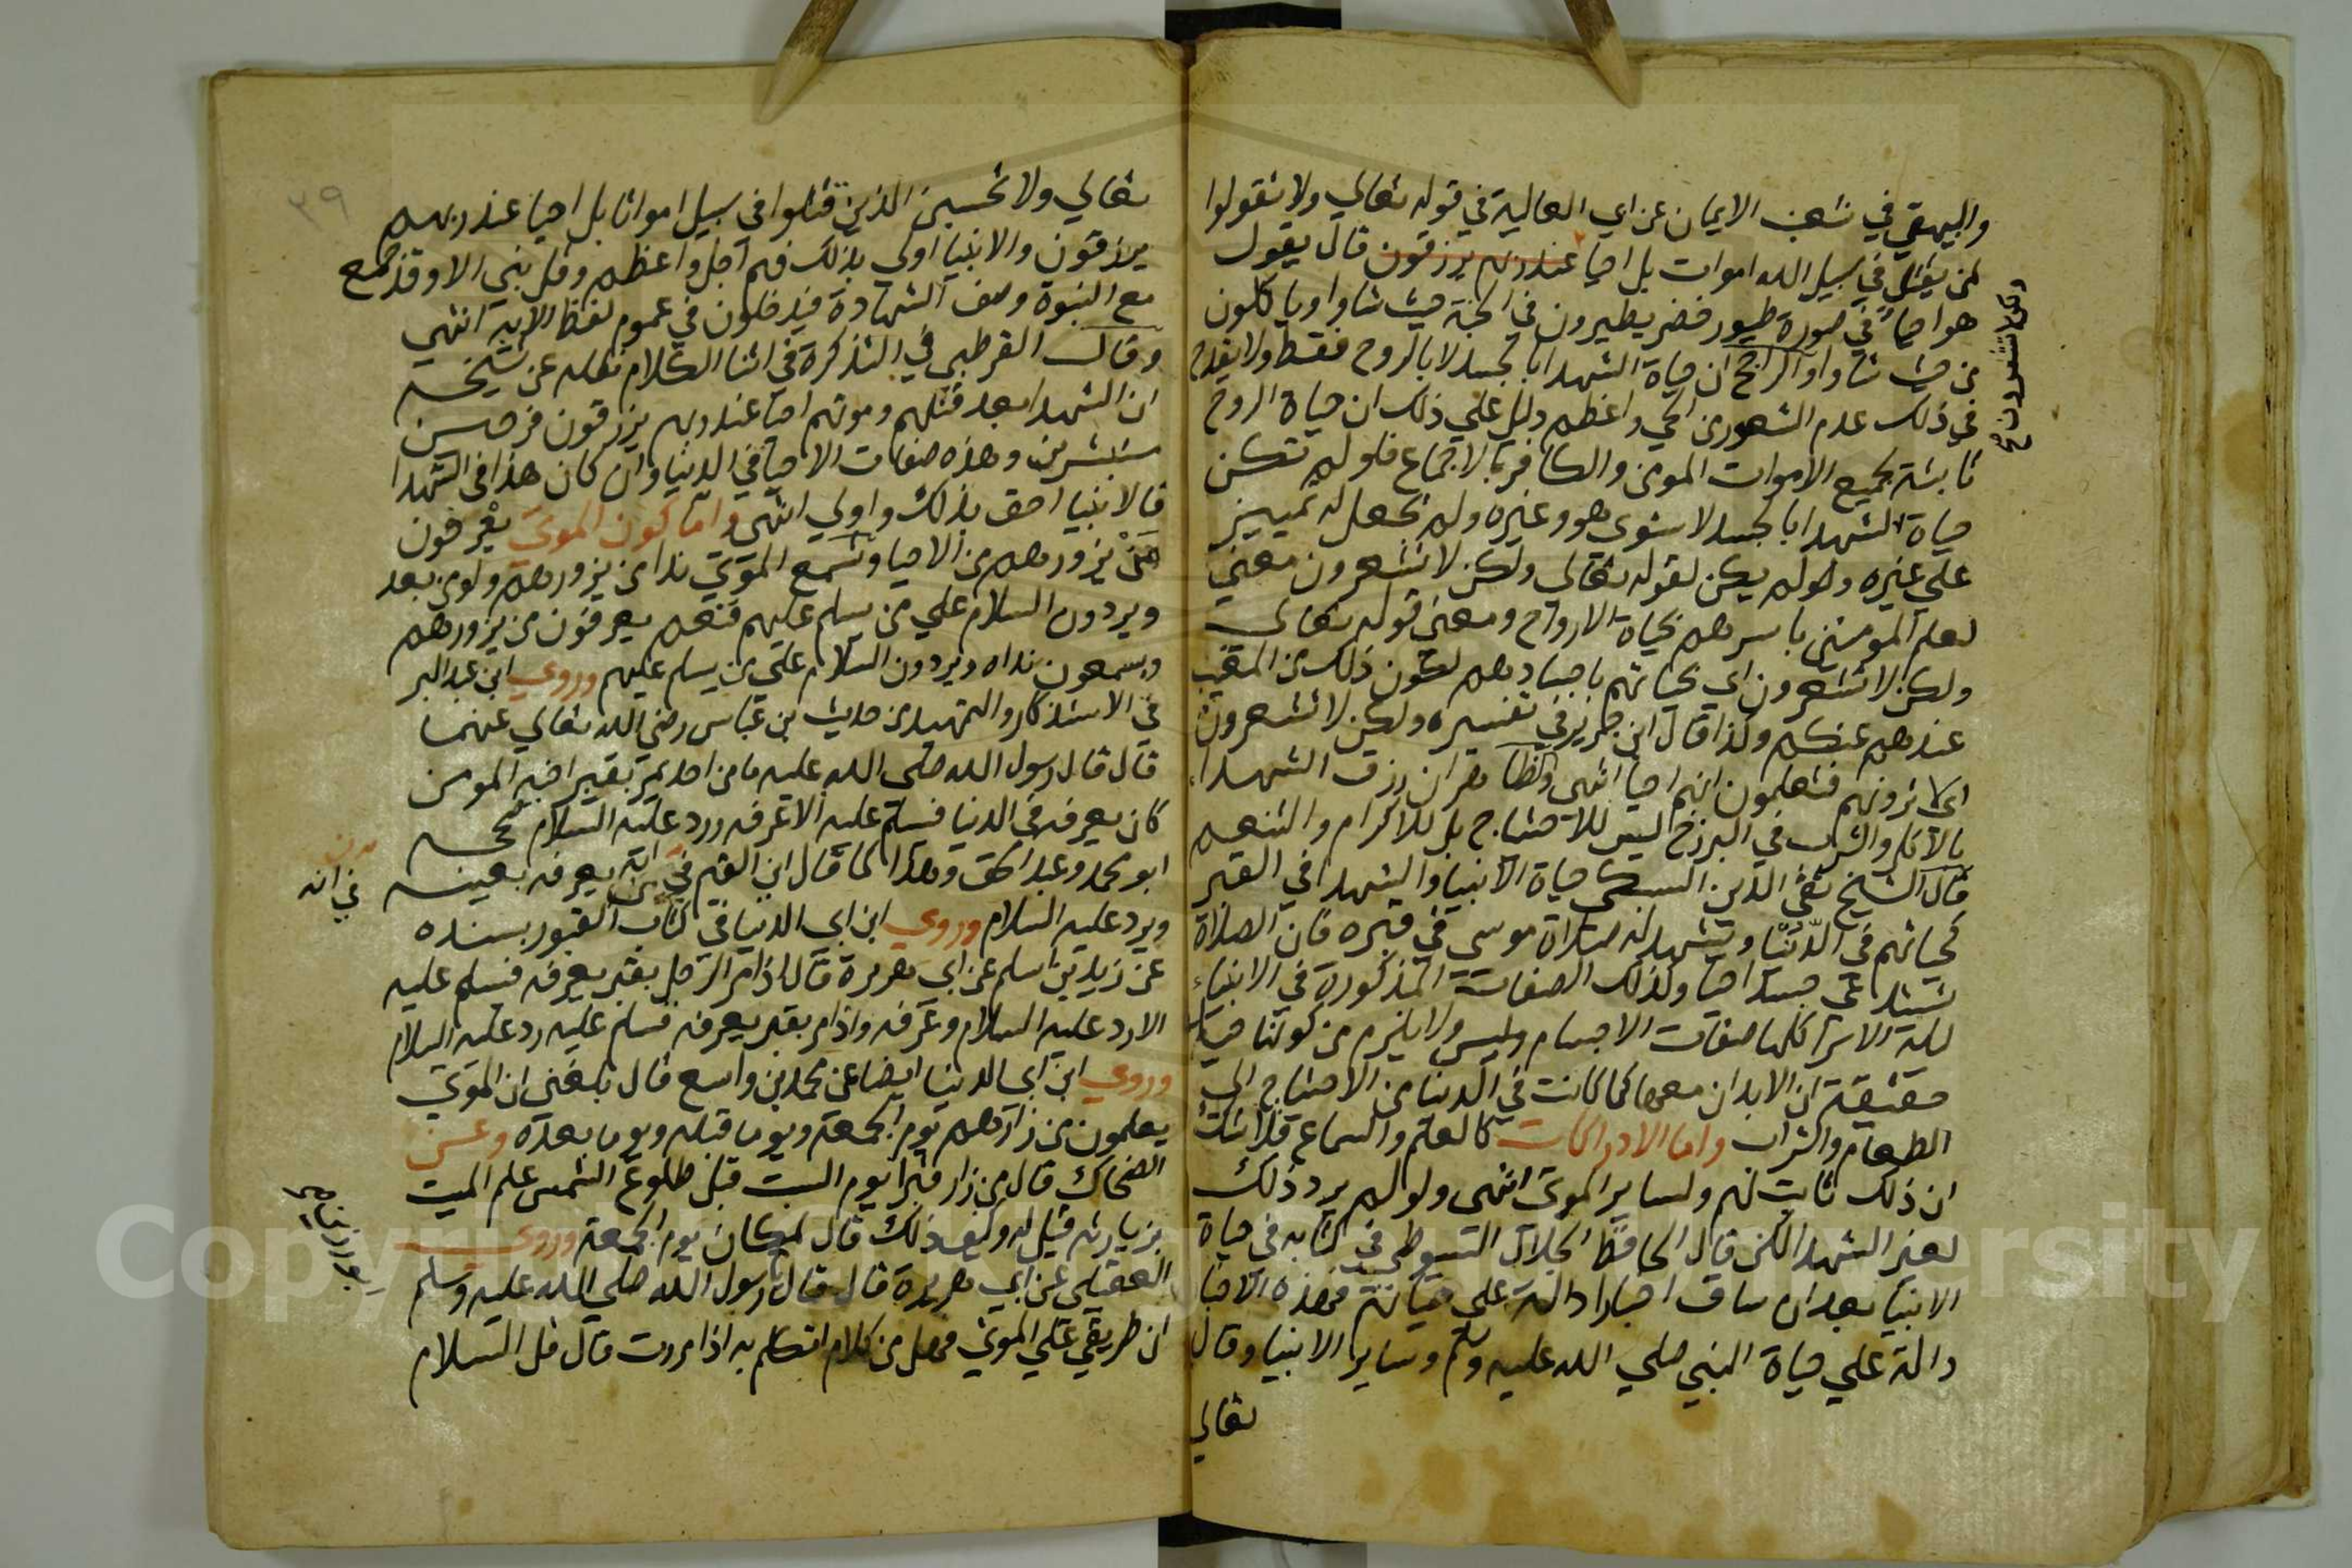 والبيهقي في شعب الايمان عن ابي العالية في قوله تعالي ولا تقولوا
لمن يقتل في سبيل الله اموات بل احيا عند ربهم يرزقون قال يقول
هو احيا في صورة طيور خضر يطيرون في الجنة حيث شاوا وياكلون
من حيث شاوا والراجح ان حياة الشهدا بالجسد لا بالروح فقط ولا يقدح
في ذلك عدم الشعور من الحي واعظم دليل علي ذلك ان حياة الروح
ثابتة لجميع الاموات المومن والكافر بالاجماع فلو لم تكن
حياة الشهدا بالجسد لاستوي هو وغيره ولم يجعل له تمييز
علي غيره ولو لم يكن لقوله تعالي ولكن لا تشعرون معني
لعلم المومنين باسرهم بحياة الارواح ومعني قوله تعالي
ولكن لا تشعرون اي بحياتهم باجسادهم لكون ذلك من المغيب
عندهم عنكم ولذا قال ابن جرير في تفسيره ولكن لا تشعرون
اي لا ترونهم فتعلمون انهم احيا انتهي وظاهر ان رزق الشهدا
بالاكل والشرب في البرزخ ليس للاحتياج بل للاكرام والتنعم
قال الشيخ تقي الدين السبكي حياة الانبيا والشهدا في القبر
كحياتهم في الدنيا ويشهد له صلاة موسي في قبره فان الصلاة
تستدعي جسدا حيا وكذلك الصفات المذكورة في الانبياء
ليلة الاسرا كلها صفات الاجسام وليس ولا يلزم من كونها حياة
حقيقة ان الابدان معها كما كانت في الدنيا من الاحتياج الي
الطعام والشراب واما الادراكات كالعلم والسماع فلا شك
ان ذلك ثابت لهم ولساير الموتي انتهي ولو لم يرد ذلك
لغير الشهدا لكن قال الحافظ الجلال السيوطي في كتابه في حياة
الانبيا بعد ان ساق اخبارا دالة علي حياته فهذه الاخبار
دالة علي حياة النبي صلي الله عليه وسلم وساير الانبيا وقال
تعالي
ولكن لا تشعرون صح
٣٩
تعالي ولا تحسبن الذين قتلوا في سبيل امواتا بل احيا عند ربهم
يرزقون والانبيا اولي بذلك فهم اجل واعظم وقل نبي الا وقد جمع
مع النبوة وصف الشهادة فيدخلون في عموم لفظ الاية انتهي
وقال القرطبي في التذكرة في اثنا الكلام نقله عن شيخه
ان الشهدا بعد قتلهم وموتهم احيا عند ربهم يرزقون فرحين
مستبشرين وهذه صفات الاحيا في الدنيا وان كان هذا في الشهدا
فالانبيا احق بذلك واولي انتهي واما كون الموتي يعرفون
من يزورهم من الاحيا وتسمع الموتي ندا من يزورهم ولو من بعد
ويردون السلام علي من سلم عليهم فنعم يعرفون من يزورهم
ويسمعون نداه ويردون السلام علي من يسلم عليهم وروي ابن عبد البر
في الاستذكار والتمهيد من حديث بن عباس رضي الله تعالي عنهما
قال قال رسول الله صلي الله عليه ما من احد يمر بقبر اخيه المومن
كان يعرفه في الدنيا فسلم عليه الا عرفه ورد عليه السلام صححه
ابو محمد وعبد الحق وهذا كما قال ابن القيم في انه يعرفه بعينه
ويرد عليه السلام وروي ابن ابي الدنيا في كتاب القبور بسنده
عن زيد بن اسلم عن ابي هريرة قال اذا مر الرجل بقبر يعرفه فسلم عليه
الا رد عليه السلام وعرفه واذا مر بقبر يعرفه فسلم عليه رد عليه السلام
وروي ابن ابي الدنيا ايضا عن محمد بن واسع قال بلغني ان الموتي
يعلمون من زارهم يوم الجمعة ويوما قبله ويوما بعده وعن
الضحاك قال من زار قبرا يوم السبت قبل طلوع الشمس علم الميت
بزيارته قيل له وكيف ذلك قال لمكان يوم الجمعة وروي
العقيلي عن ابي هريرة قال قال رسول الله صلي الله عليه وسلم
ان طريقي علي الموتي فهل من كلام اتكلم به اذا مررت قال قل السلام
في انه